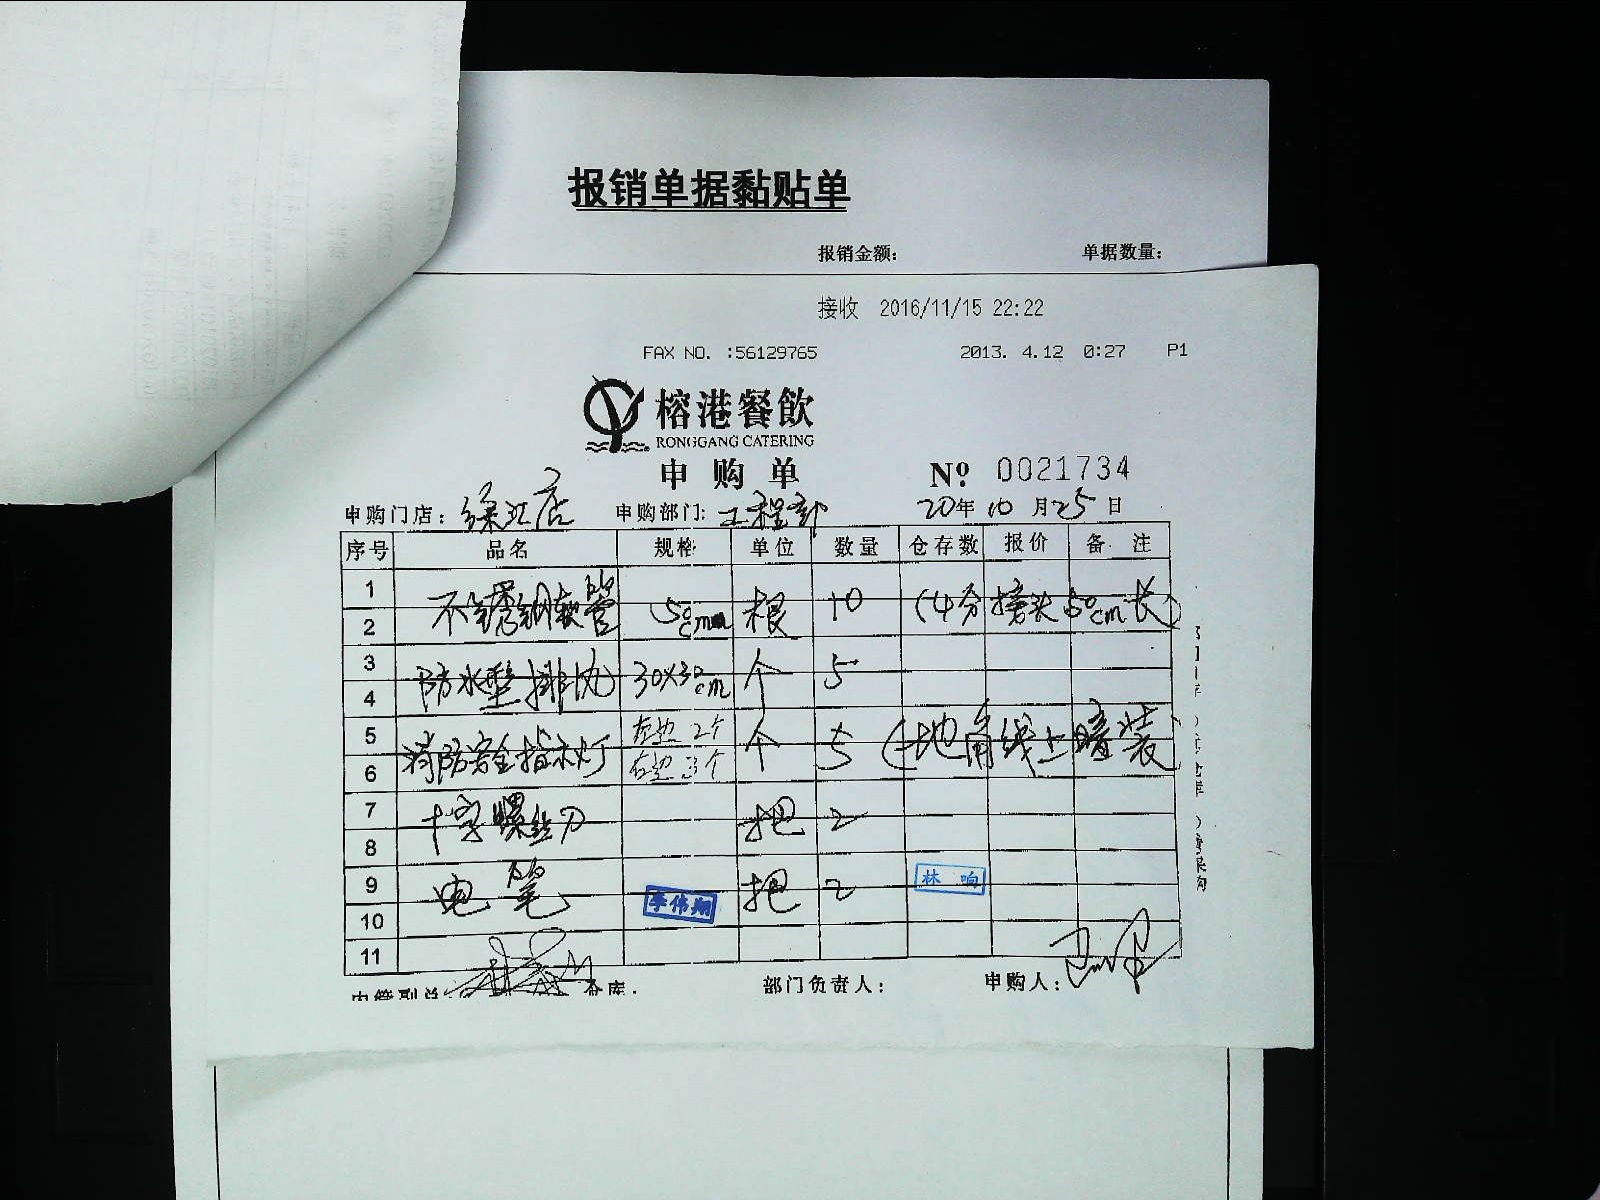 报销单据黏贴单
报销金额： 单据数量：
接收 2016/11/15 22:22
FAX NO. :56129765 2013. 4.12 0:27 P1
榕港餐飲
RONGGANG CATERING
申购单 Nº 0021734
申购门店： 徐汇店 申购部门: 工程部 20年10月25日
序号 品名 规格 单位 数量 仓存数 报价 备注
1
不锈钢软管 50cm 根 10 (4分接头50cm长)
2
3
防水型排 30X30cm 个 5
4
5
消防安全指示灯 左边2个 右边3个 个 5 (地角线上暗装)
6
7
十字螺丝刀 把 2
8
9
电笔 把 2 林响
李伟翔
10
11
内管副总 仓库: 部门负责人： 申购人: